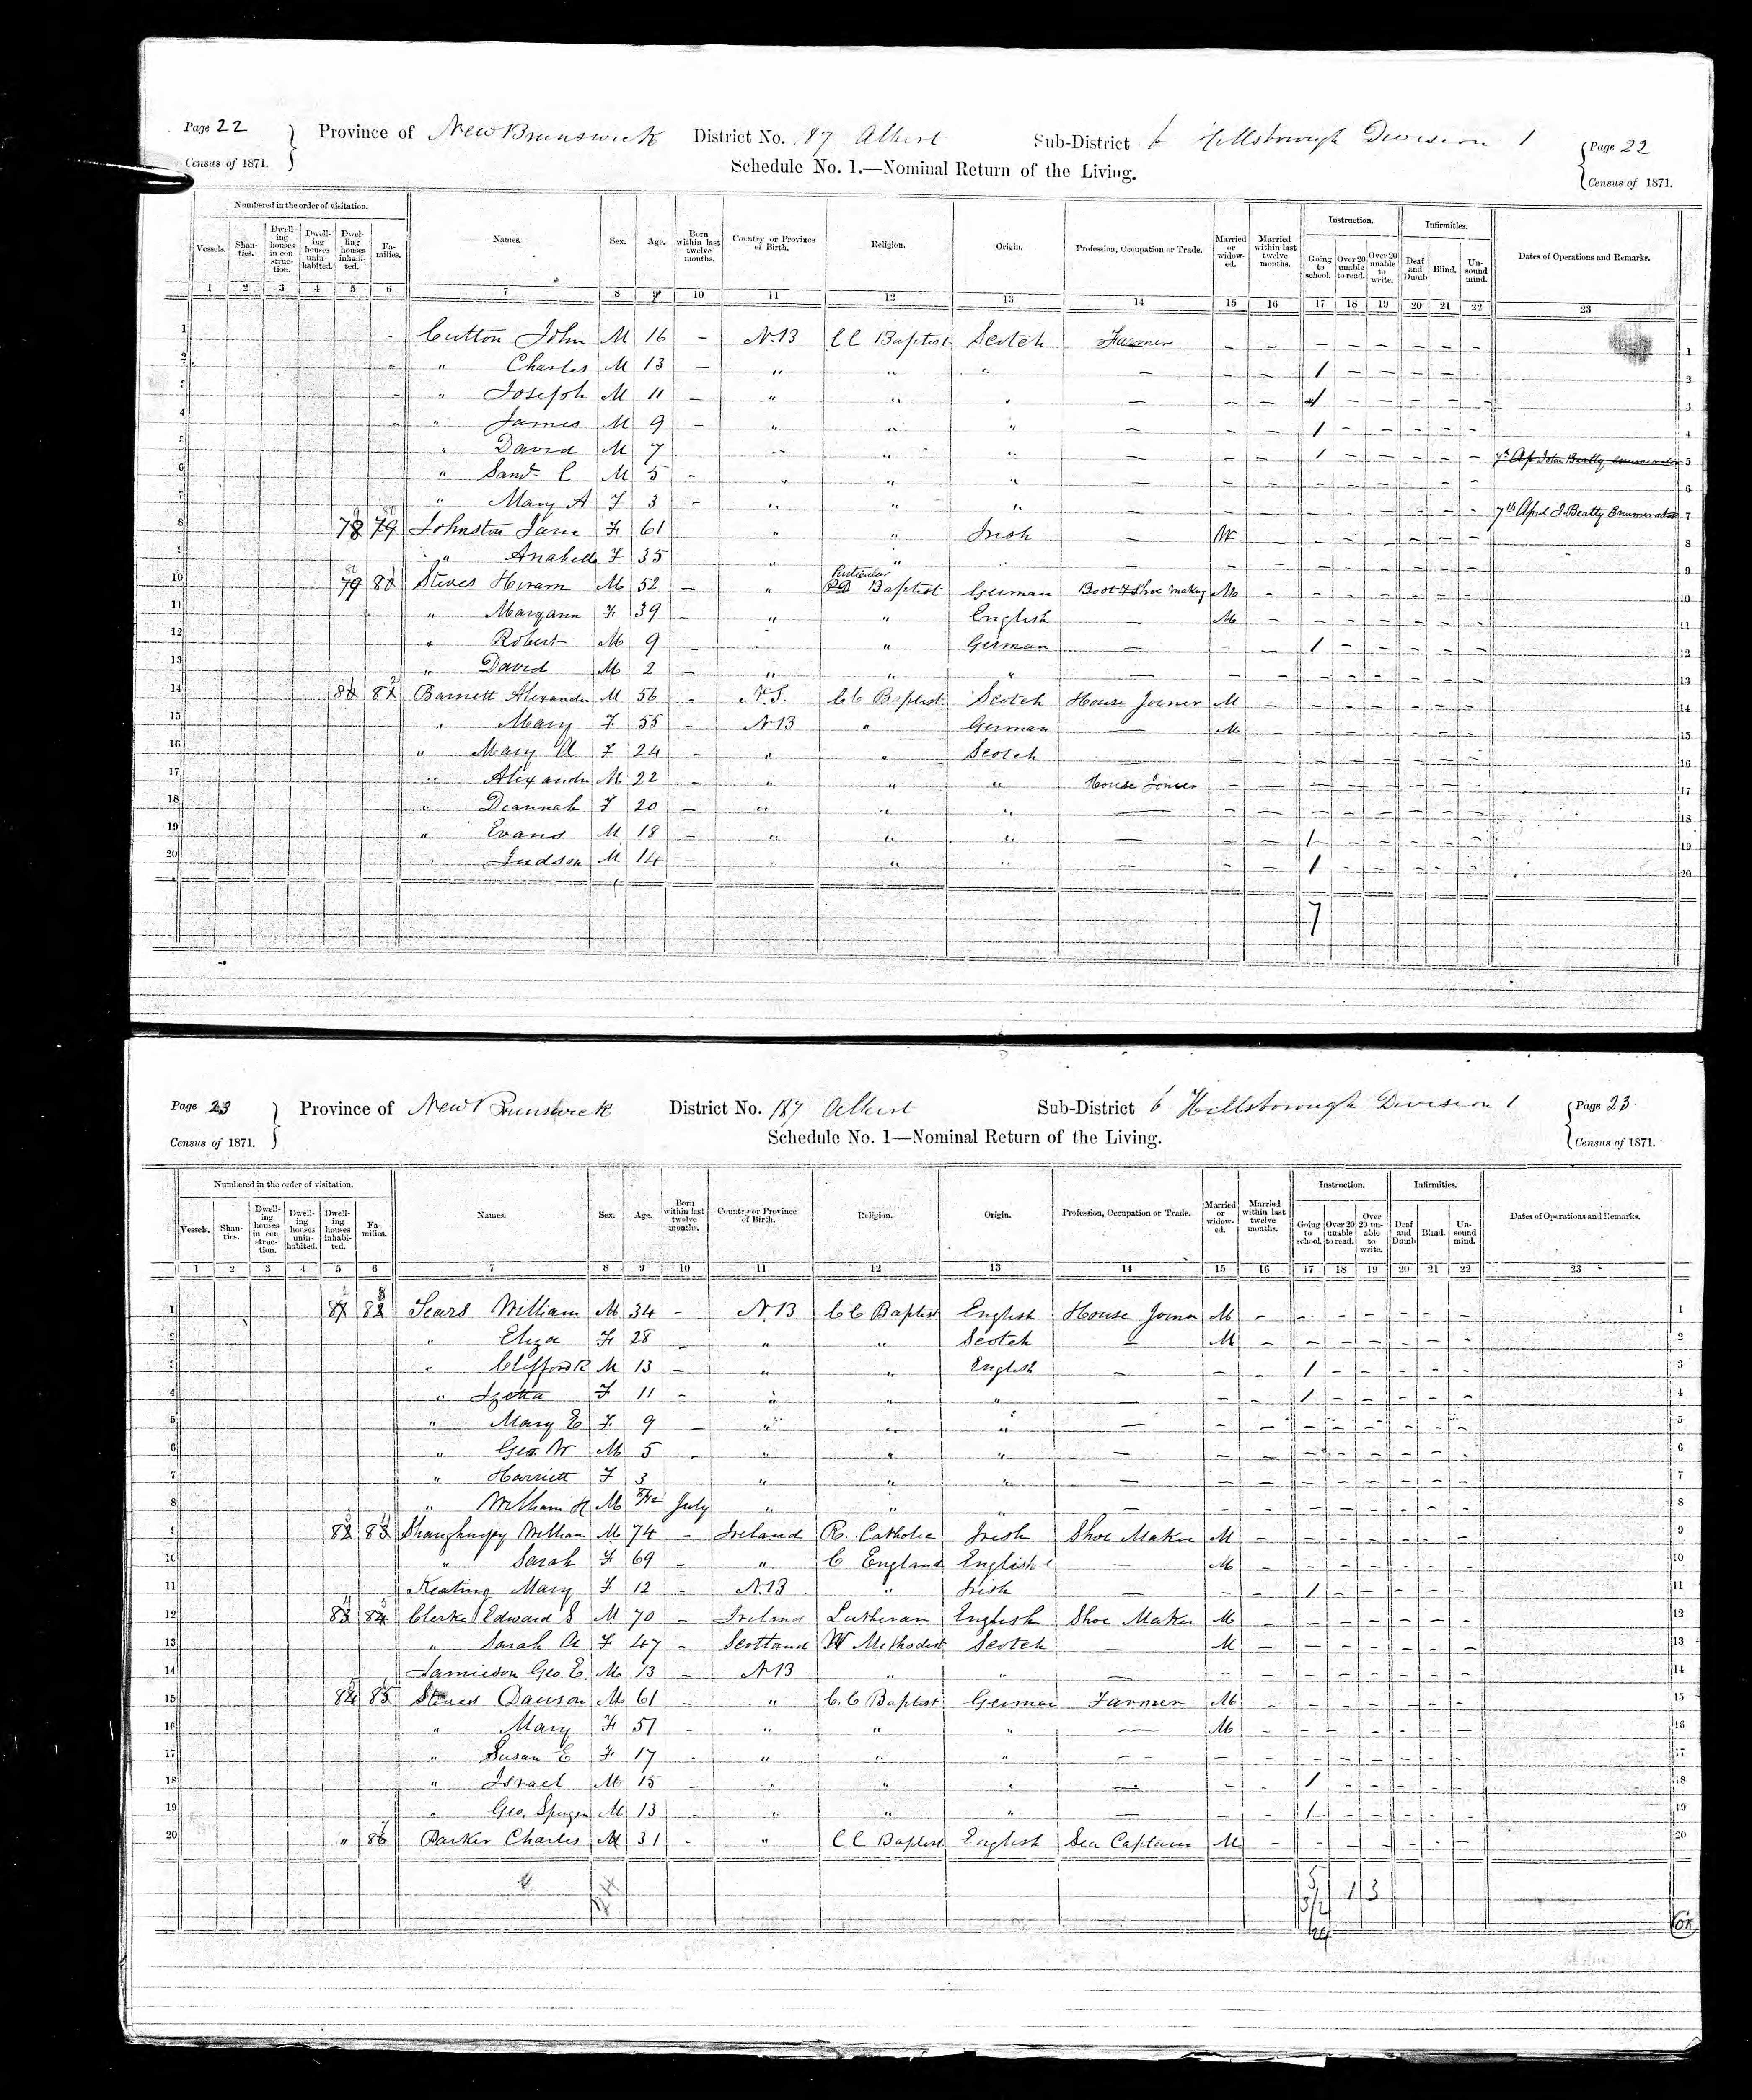 Page 22 Province of New Brunswick District No. 187 Albert Sub-District b Hillsborough Division 1 Page 22
Census of 1871. Schedule No. 1.—Nominal Return of the Living. Census of 1871.
Numbered in the order of visitation. Instruction. Infirmities.
Vessels. Shanties. Dwelling houses in construction. Dwelling houses uninhabited. Dwelling houses inhabited. Families. Names. Sex. Age. Born within last twelve months. Country or Province of Birth. Religion. Origin. Profession, Occupation or Trade. Married or widowed. Married within last twelve months. Going to school. Over 20 unable to read. Over 20 unable to write. Deaf and Dumb Blind. Unsound mind. Dates of Operations and Remarks.
1 2 3 4 5 6 7 8 9 10 11 12 13 14 15 16 17 18 19 20 21 22 23
1 - Cutton John M 16 - N.B C C Baptist Scotch Farmer - - - - - - - - 1
2 - " Charles M 13 - " " " - - - 1 - - - - - 2
3 - " Joseph M 11 - " " " - - - 1 - - - - - 3
4 " James M 9 - " " " - - - 1 - - - - - 4
5 " David M 7 " " " - - - 1 - - - - - 7th Ap John Beatty enumerator 5
6 " Saml. C M 5 - " " " - - - - - - - - - 6
7 " Mary A F 3 - " " " - - - - - - - - - 7th April J. Beatty Enumerator 7
8 78 79 Johnston Jane F 61 " " Irish - W - - - - - - - 8
9 " Anabell F 35 " " " - - - - - - - - - 9
10 79 80 Steves Hiram M 52 - " Particular Baptist German Boot & Shoe making M - - - - - - - 10
11 " Maryann F 39 - " " English - M - - - - - - - 11
12 " Robert M 9 - " German - - - 1 - - - - - 12
13 " David M 2 - " " " - - - - - - - - - 13
14 80 81 Barnett Alexander M 56 - N.S. C C Baptist Scotch House Joiner M - - - - - - - 14
15 " Mary F 55 - N B " German - M - - - - - - - 15
16 " Mary A F 24 - " " Scotch 16
17 " Alexander M 22 - " " " House Joiner - - - - - - - - 17
18 " Deannah F 20 - " " " - - - - - - - - - 18
19 " Evans M 18 - " " " - - - 1 - - - - - 19
20 " Judson M 14 - " " " - - - 1 - - - - - 20
7
Page 23 Province of New Brunswick District No. 187 Albert Sub-District b Hillsborough Division 1 Page 23
Census of 1871. Schedule No. 1—Nominal Return of the Living. Census of 1871.
Numbered in the order of visitation. Instruction. Infirmities.
Vessels. Shanties. Dwelling houses in construction. Dwelling houses uninhabited. Dwelling houses inhabited. Families. Names. Sex. Age. Born within last twelve months. Country or Province of Birth. Religion. Origin. Profession, Occupation or Trade. Married or widowed. Married within last twelve months. Going to school. Over 20 unable to read. Over 20 unable to write. Deaf and Dumb Blind. Unsound mind. Dates of Operations and Remarks.
1 2 3 4 5 6 7 8 9 10 11 12 13 14 15 16 17 18 19 20 21 22 23
1 81 82 Sears William M 34 - N.B C C Baptist English House Joiner M - - - - - - - 1
2 " Eliza F 28 - " " Scotch - M - - - - - - - 2
3 " Clifford R M 13 - " " English - - - 1 - - - - - 3
4 " Izetta F 11 - " " " - - - 1 - - - - - 4
5 " Mary E F 9 - " " " - - - - - - - - - 5
6 " Geo. W M 5 - " " " - - - - - - - - - 6
7 " Harriett F 3 " " " - - - - - - - - - 7
8 " William H M 8/12 July " " " - - - - - - - - - 8
9 82 83 Shaughnessy William M 74 - Ireland R. Catholic Irish Shoe Maker M - - - - - - - 9
10 " Sarah F 69 - " C England English - M - - - - - - - 10
11 Keating Mary F 12 - N.B " Irish - - - 1 - - - - - 11
12 83 84 Clerke Edward S M 70 - Ireland Lutheran English Shoe Maker M - - - - - - - 12
13 " Sarah A F 47 - Scotland W Methodist Scotch - M - - - - - - - 13
14 Jamieson Geo E. M 13 - N B " " - - - - - - - - - 14
15 84 85 Steves Dawson M 61 - " C.C Baptist German Farmer M - - - - - - - 15
16 " Mary F 57 - " " " - M - - - - - - - 16
17 " Susan E F 17 - " " " - - - - - - - - - 17
18 " Israel M 15 - " " " - - - 1 - - - - - 18
19 " Geo. Spurgen M 13 - " " " - - - 1 - - - - - 19
20 " 86 Parker Charles M 31 - " C C Baptist English Sea Captain M - - - - - - - 20
5 1 3
24
OK